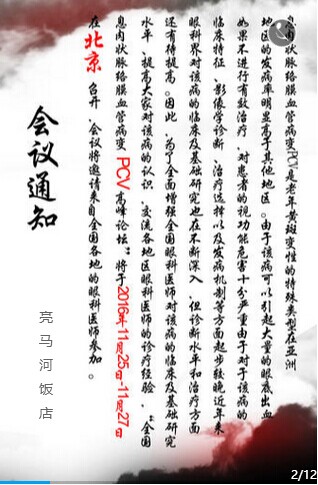 会议通知
息肉状脉络膜血管病变PCV是老年黄斑变性的特殊类型在亚洲
地区的发病率明显高于其他地区。由于该病可以引起大量的眼底出血
如果不进行有效治疗，对患者的视功能危害十分严重由于对于该病的
临床特征、影像学诊断、治疗选择以及发病机制等方面起步较晚近年来
眼科界对该病的临床及基础研究也在不断深入，但诊断水平和治疗方面
还有待提高。因此，为了全面增强全国眼科医师对该病的临床及基础研究
水平、提高大家对该病的认识、交流各地区眼科医师的诊疗经验，“全国
息肉状脉络膜血管病变PCV高峰论坛”将于2016年11月25日-11月27日
在北京召开，会议将邀请来自全国各地的眼科医师参加。
亮马河饭店
2/12